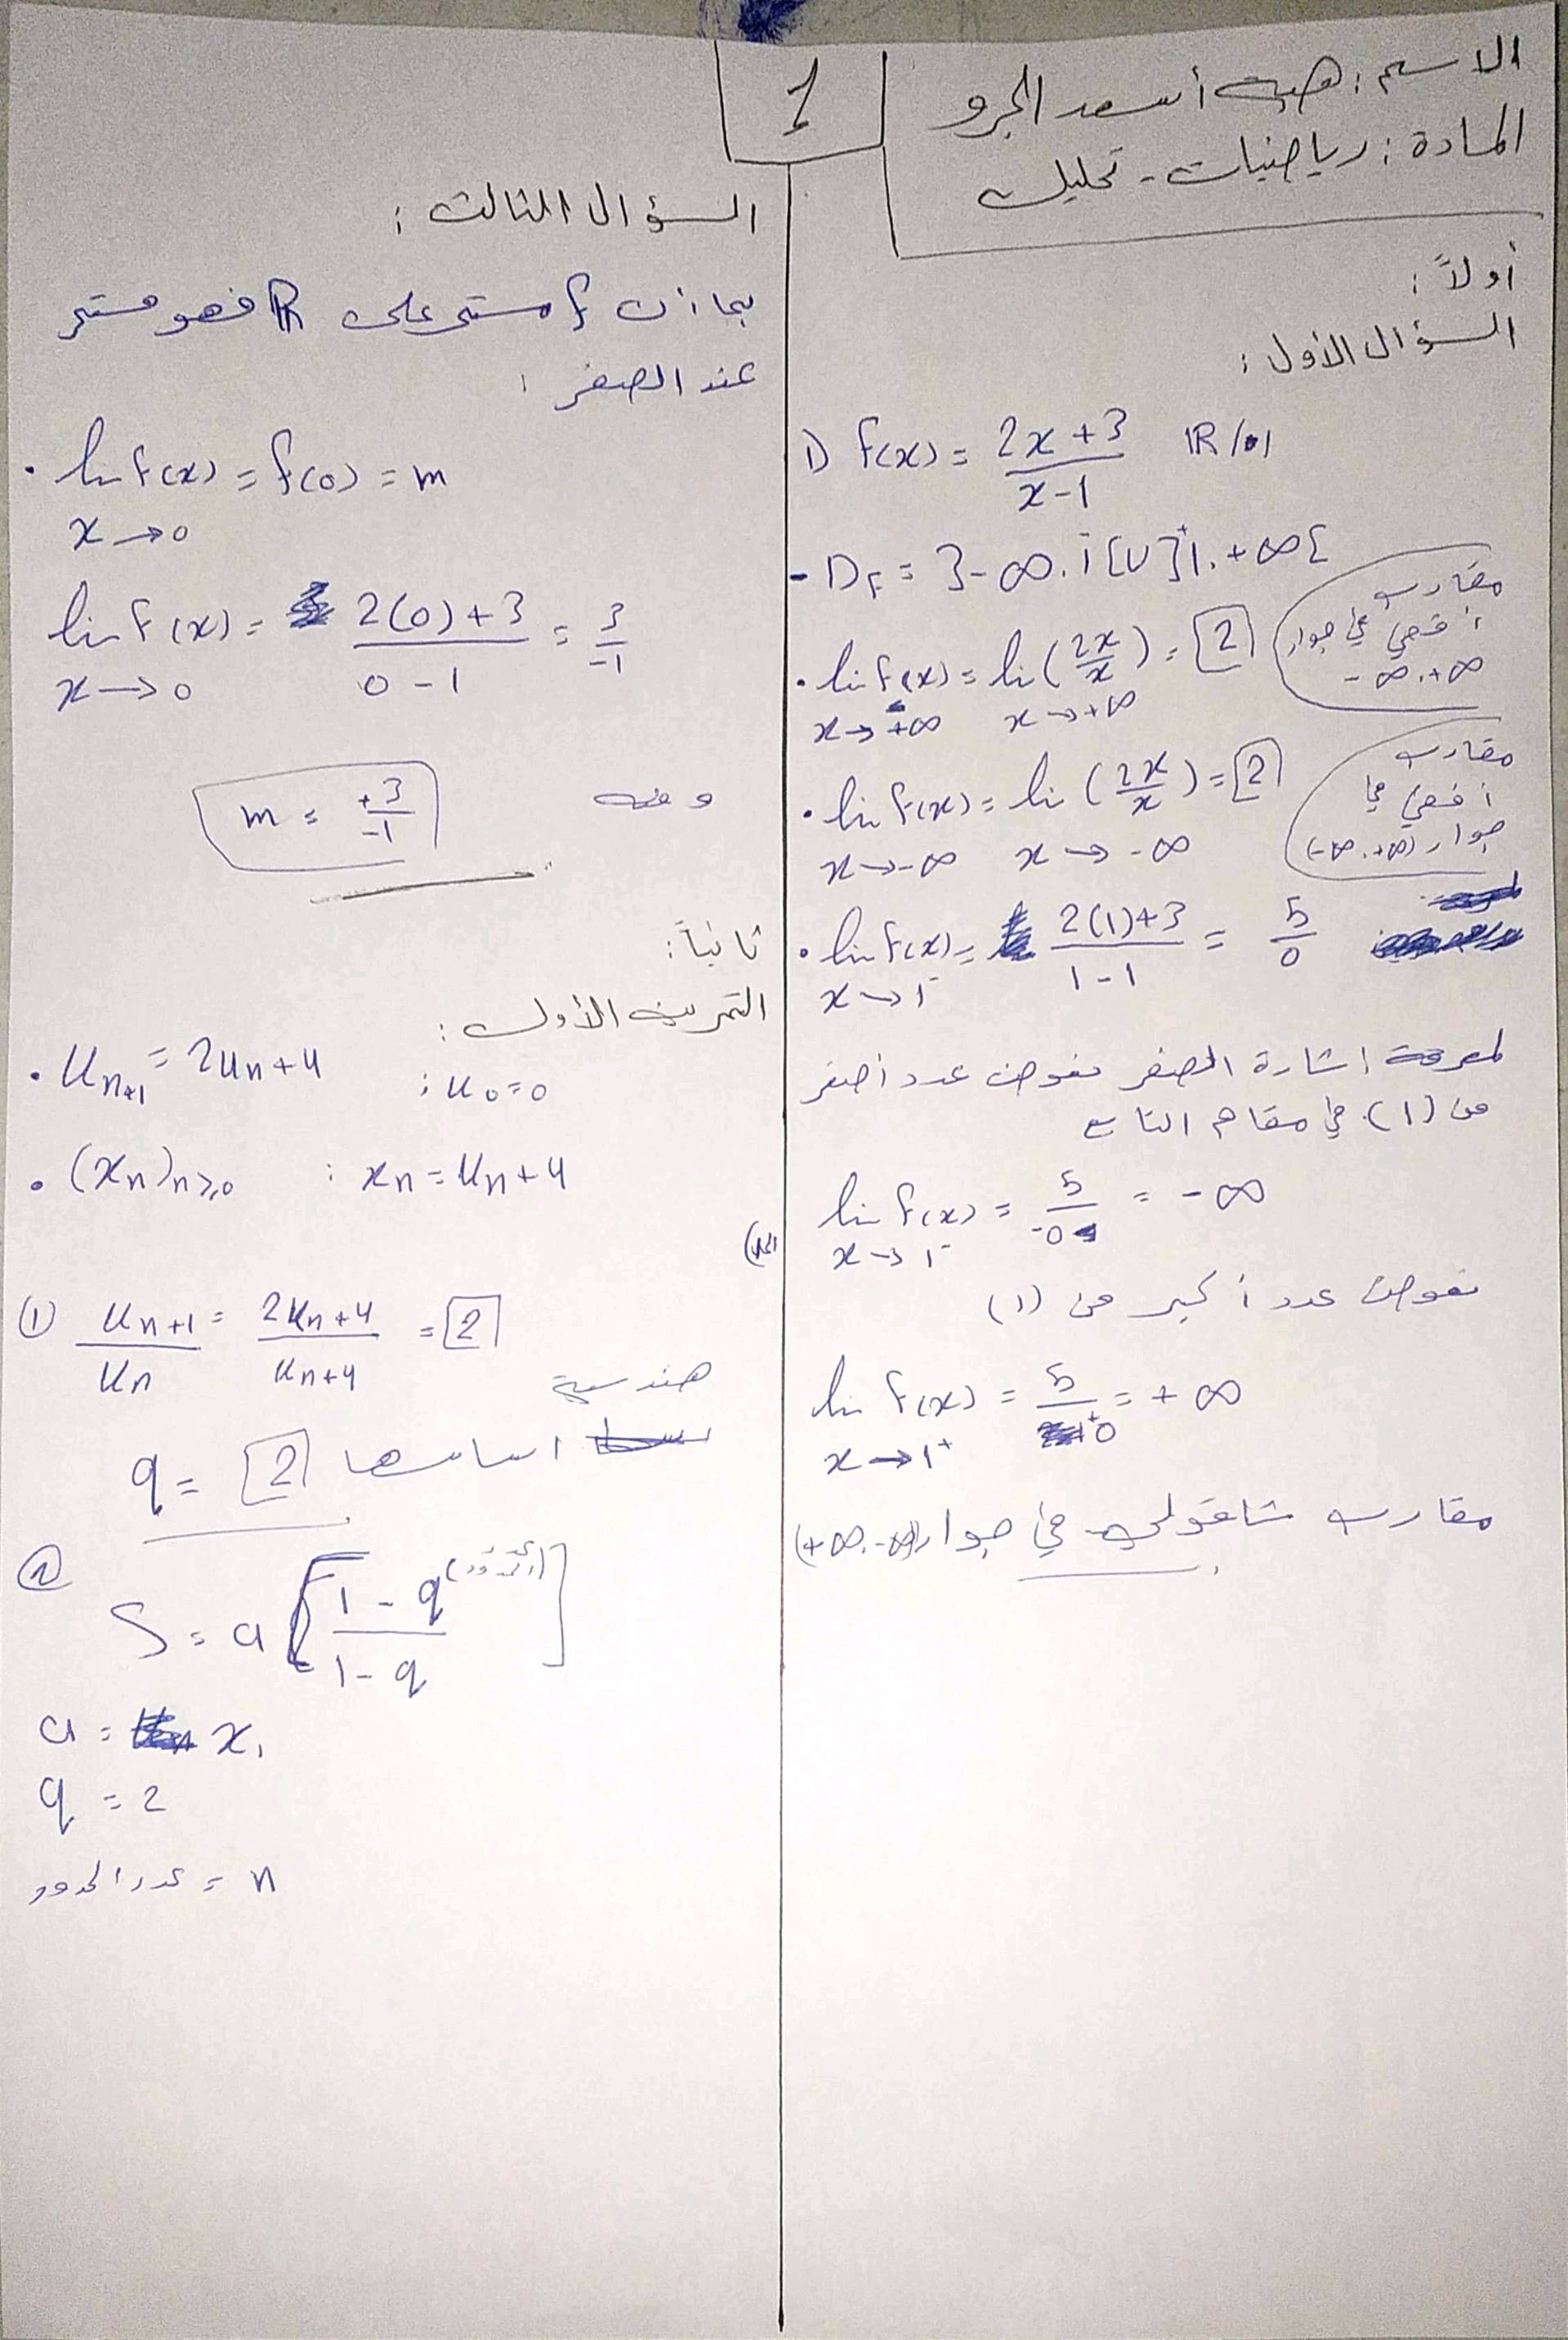 الاسم: هبة أسعد الجرو
المادة: رياضيات - تحليل
1
أولاً:
السؤال الأول:
1) f(x) = \frac{2x+3}{x-1} IR/01
- D_f = ]-∞, 1[ U ]1, +∞[
• lim f(x) = lim (\frac{2x}{x}) = 2
x→+∞ x→+∞
مقارب
أفقي في جوار
-∞,+∞
• lim f(x) = lim (\frac{2x}{x}) = 2
x→-∞ x→-∞
مقارب
أفقي في
جوار (-∞,+∞)
• lim f(x) = \frac{2(1)+3}{1-1} = \frac{5}{0}
x→1⁻
لمعرفة إشارة الصفر نعوض عدد أصغر
من (1) في مقام التابع
lim f(x) = \frac{5}{-0} = -∞
x→1⁻
نعوض عدد أكبر من (1)
lim f(x) = \frac{5}{+0} = +∞
x→1⁺
مقارب شاقولي في جوار (+∞,-∞)
السؤال الثالث:
بما أن f مستمر على R فهو مستمر
عند الصفر:
• lim f(x) = f(0) = m
x→0
lim f(x) = \frac{2(0)+3}{0-1} = \frac{3}{-1}
x→0
ومنه m = \frac{+3}{-1}
ثانياً:
التمرين الأول:
• U_{n+1} = 2U_n+4 : U_0=0
• (x_n)_{n≥0} : x_n = U_n+4
① \frac{U_{n+1}}{U_n} = \frac{2U_n+4}{U_n+4} = 2
هندسية
أساسها q = 2
② S = a [\frac{1-q^{(عدد الحدود)}}{1-q}]
a = x_1
q = 2
n = عدد الحدود